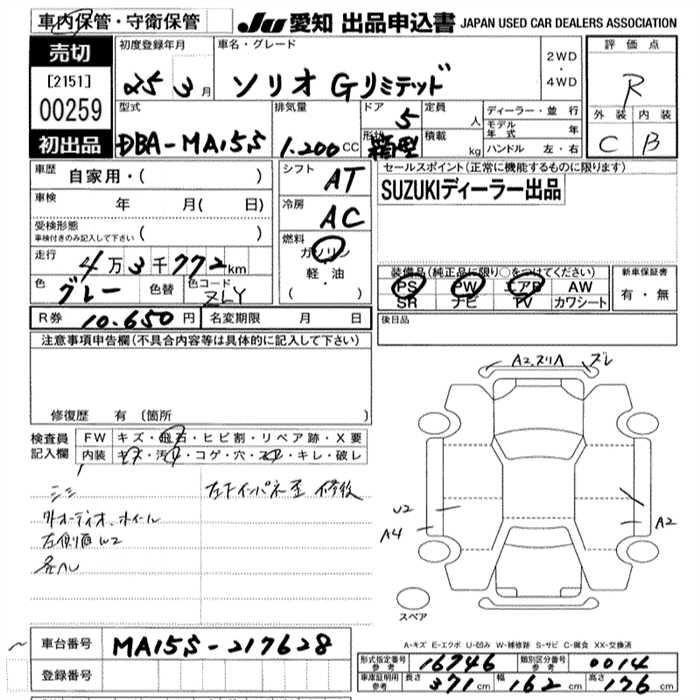 車内保管・守衛保管
JU 愛知 出品申込書 JAPAN USED CAR DEALERS ASSOCIATION
売切
[2151]
00259
初出品
初度登録年月
25 3月
車名・グレード
ソリオ Gリミテッド
2WD
・
4WD
評価点
R
外装 内装
C B
型式
DBA-MA15S
排気量
1.200cc
ドア
5
形状
箱型
定員
人
積載
kg
ディーラー・並行
モデル年式 年
ハンドル 左・右
車歴 自家用・( )
車検 年 月( 日)
受検形態
車検付きのみ記入して下さい ( )
走行 4万3千772km
色 グレー 色替 色コード ZLY
シフト
AT
冷房
AC
燃料
ガソリン
軽・油
( ・ )
セールスポイント(正常に機能するものに限ります)
SUZUKIディーラー出品
装備品(純正品に限り○をつけてください)
PS PW エアB AW
SR ナビ TV カワシート
新車保証書
有・無
後日品
R券 10.650円 名変期限 月 日
注意事項申告欄(不具合内容等は具体的に記入して下さい)
修復歴 有 (箇所 )
検査員記入欄
FW キズ・飛石・ヒビ割・リペア跡・X要
内装 キズ・汚れ・コゲ・穴・スレ・キレ・破レ
左下インパネ歪 修後
外オーディオ、ホイール
左側面W2
A2.スリA ズレ
U2
A4
A2
スペア
A-キズ E-エクボ U-凹み W-補修跡 S-サビ C-腐食 XX-交換済
車台番号 MA15S-217628
登録番号
形式指定番号 参考 16746 類別区分番号 参考 0014
車庫証明用 参考 長さ 371cm 幅 162cm 高さ 176cm